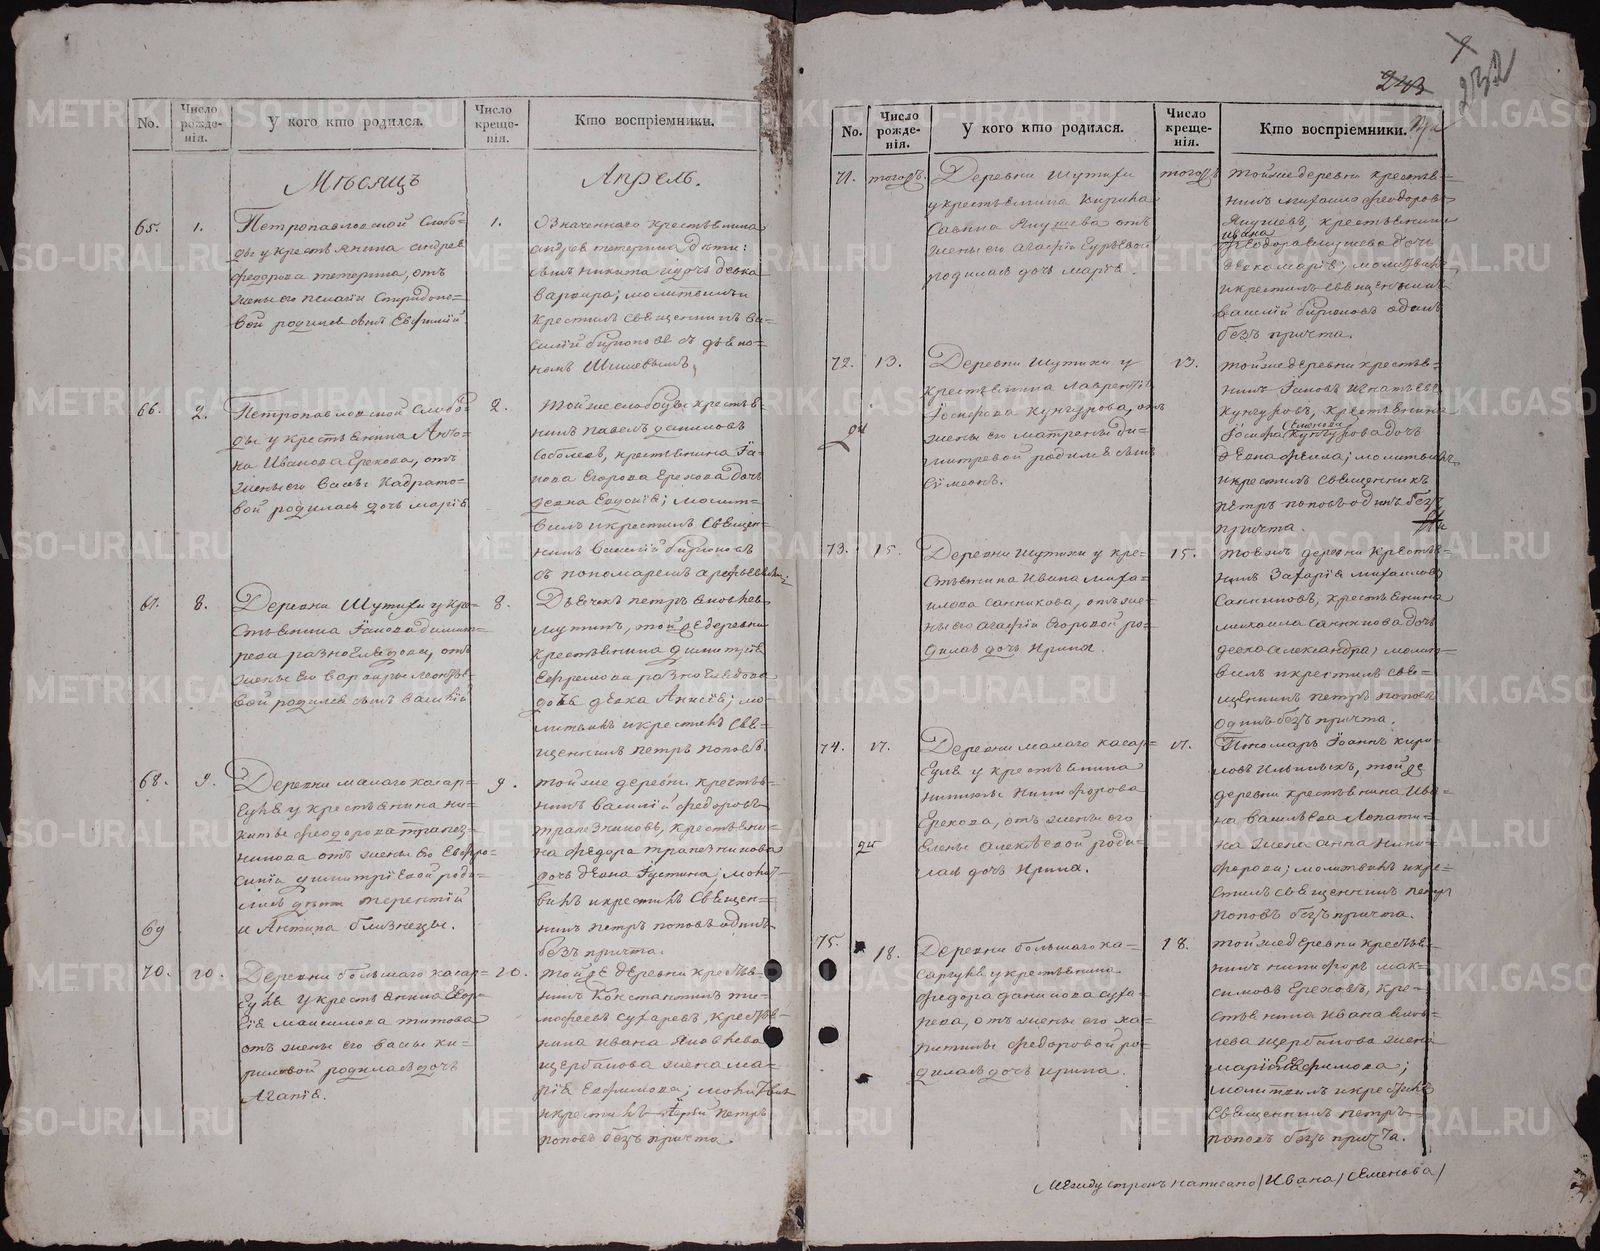 No.
Число рожде-нія.
У кого кто родился.
Число креще-нія.
Кто воспріемники.
Мѣсяцъ
Апрель.
65.
1.
Петропавловской Слобо=
ды у крестьянина андрея
федорова тетерина, отъ
жены его пелагіи Спиридоно=
вой родился сынъ Евфимій
1.
Означеннаго крестьянина
андрея тетерина дѣти:
сынъ никита и дочь девка
варвара; молитвилъ и
крестилъ священникъ ва=
силій бирюковъ съ дьяко=
номъ
66.
2.
Петропавловской Слобо=
ды у крестьянина
Иванова Ерехова, отъ
жены его
вой родилась дочь марія
2.
Тойже слободы крестья=
нинъ павелъ даниловъ
Соболевъ, крестьянина Іа=
кова Егорова Ерехова дочь
девка Евдокія; молит=
вилъ и крестилъ Священ=
никъ василій бирюковъ
съ пономаремъ арефьевымъ
67.
8.
Деревни Шутихи у кре=
стьянина Іакова димит=
рева разноглядова, отъ
жены его варвары леонтье=
вой родился сынъ василій
8.
Дьячекъ петръ яковлевъ
тойже деревни
крестьянина димитрія
Ефремова разноглядова
дочь девка Анисія; мо=
литвилъ и крестилъ Свя=
щенникъ петръ поповъ.
68.
9.
Деревни малаго касар=
гуля у крестьянина ни=
киты феодорова трапез=
никова отъ жены его Евфро=
синіи димитріевой роди=
лись дѣти терентій
69
и Антипа близнецы.
9.
тойже деревни крестья=
нинъ василій федоровъ
трапезниковъ, крестьяни=
на федора трапезникова
дочь девка Іустина; молит=
вилъ и крестилъ Священ=
никъ петръ поповъ одинъ
безъ причта.
70.
10.
Деревни большаго касар=
гуля у крестьянина Егор=
ія максимова титова
отъ жены его васы ки=
риловой родилась дочь
Агапія.
10.
тойже деревни крестья=
нинъ Константинъ ти=
мофеевъ Сухаревъ, крестья=
нина ивана яковлева
щербакова жена ма=
рія Евфимова; молитвилъ
и крестилъ Іерей петръ
поповъ безъ причта
243
232
No.
Число рожде-нія.
У кого кто родился.
Число креще-нія.
Кто воспріемники.
71.
тогожъ.
Деревни шутихи
у крестьянина кирила
Савина Якушева отъ
жены его Агафіи Гурьевой
родилась дочь марія.
тогожъ
тойже деревни крестья=
нинъ михаилъ феодоровъ
Якушевъ, крестьянина
ивана
феодора якушева дочь
девка марія; молитвилъ
и крестилъ священникъ
василій бирюковъ одинъ
безъ причта.
72.
13.
Деревни шутихи у
крестьянина лаврентія
Іосифова кунгурова, отъ
жены его матрены ди=
митревой родился сынъ
Сѵмеонъ.
13.
тойже деревни крестья=
нинъ Іаковъ Игнатьевъ
кунгуровъ, крестьянина
Семенова
Іосифа кунгурова дочь
девка фекла; молитвилъ
и крестилъ священникъ
петръ поповъ одинъ безъ
причта.
73.
15.
Деревни шутихи у кре=
стьянина Ивана миха=
илова санникова, отъ же=
ны его агафіи Егоровой ро=
дилась дочь Ирина.
15.
тоежъ деревни крестья=
нинъ Захарія михайловъ
Санниковъ, крестьянина
михаила санникова дочь
девка александра; молит=
вилъ и крестилъ свя=
щенникъ петръ поповъ
одинъ безъ причта.
74.
17.
Деревни малаго касар=
гуля у крестьянина
никиты никифорова
Ерехова, отъ жены его
елены алексѣевой роди=
лась дочь Ирина.
17.
Пономарь Іоаннъ кири=
ловъ Ильиныхъ, тойже
деревни крестьянина Ива=
на васильева Лопати=
на жена анна ники=
форова; молитвилъ и кре=
стилъ священникъ петръ
поповъ безъ причта.
75.
18.
Деревни большаго ка=
саргуля у крестьянина
федора данилова суха=
рева, отъ жены его ха=
ритины федоровой ро=
дилась дочь ирина.
18.
тойже деревни крестья=
нинъ никифоръ мак=
симовъ Ереховъ, кре=
стьянина ивана яков=
лева щербакова жена
марія Евфимова;
молитвилъ и крестилъ
священникъ петръ
поповъ безъ причта.
Между строкъ написано /Ивана/ Семенова/